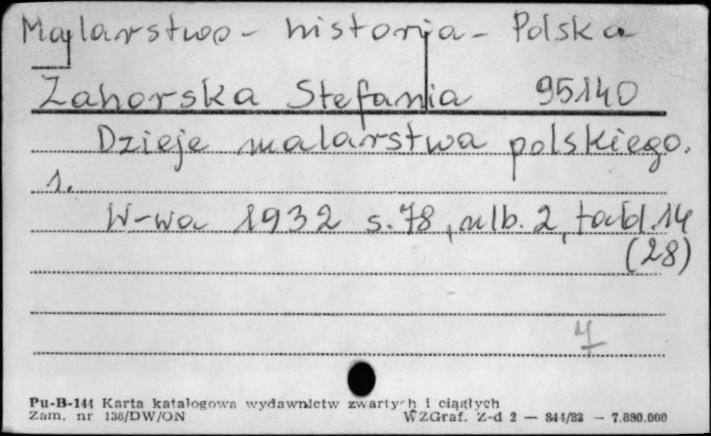 Malarstwo - historia - Polska
Zahorska Stefania 95140
Dzieje malarstwa polskiego.
1.
W-wa 1932 s. 78, nlb. 2, tabl. 14
(28)
7
Pu-B-144 Karta katalogowa wydawnictw zwartych i ciągłych
Zam. nr 136/DW/ON WZGraf. Z-d 2 — 844/83 — 7.890.000